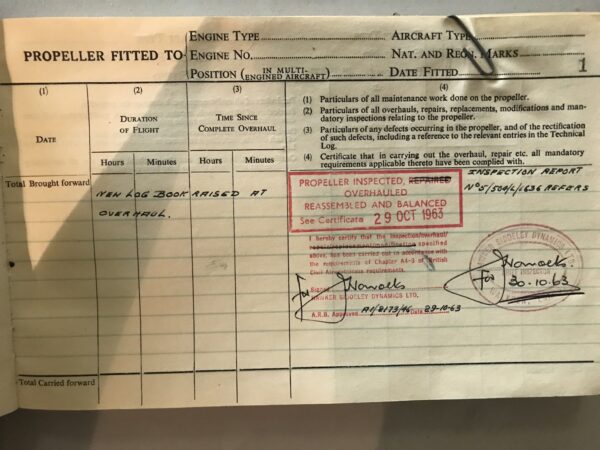 PROPELLER FITTED TO
ENGINE TYPE
ENGINE NO.
POSITION (IN MULTI-ENGINED AIRCRAFT)
AIRCRAFT TYPE
NAT. AND REGN. MARKS
DATE FITTED
1
(1)
DATE
(2)
DURATION
OF FLIGHT
Hours Minutes
(3)
TIME SINCE
COMPLETE OVERHAUL
Hours Minutes
(4)
(1) Particulars of all maintenance work done on the propeller.
(2) Particulars of all overhauls, repairs, replacements, modifications and man-
datory inspections relating to the propeller.
(3) Particulars of any defects occurring in the propeller, and of the rectification
of such defects, including a reference to the relevant entries in the Technical
Log.
(4) Certificate that in carrying out the overhaul, repair etc. all mandatory
requirements applicable thereto have been complied with.
Total Brought forward
NEW LOG BOOK RAISED AT
OVERHAUL.
PROPELLER INSPECTED, REPAIRED
OVERHAULED
REASSEMBLED AND BALANCED
See Certificate 29 OCT 1963
INSPECTION REPORT
REFERS
I hereby certify that the inspection/overhaul/
repair/replacement/modification specified
above, has been carried out in accordance with
the requirements of Chapter A4-3 of British
Civil Airworthiness requirements.
Signed
For
HAWKER SIDDELEY DYNAMICS LTD.
A.R.B. Approval AI/2173/46 Date 29-10-63
HAWKER SIDDELEY DYNAMICS LTD.
INSPECTION
For
30.10.63
Total Carried forward